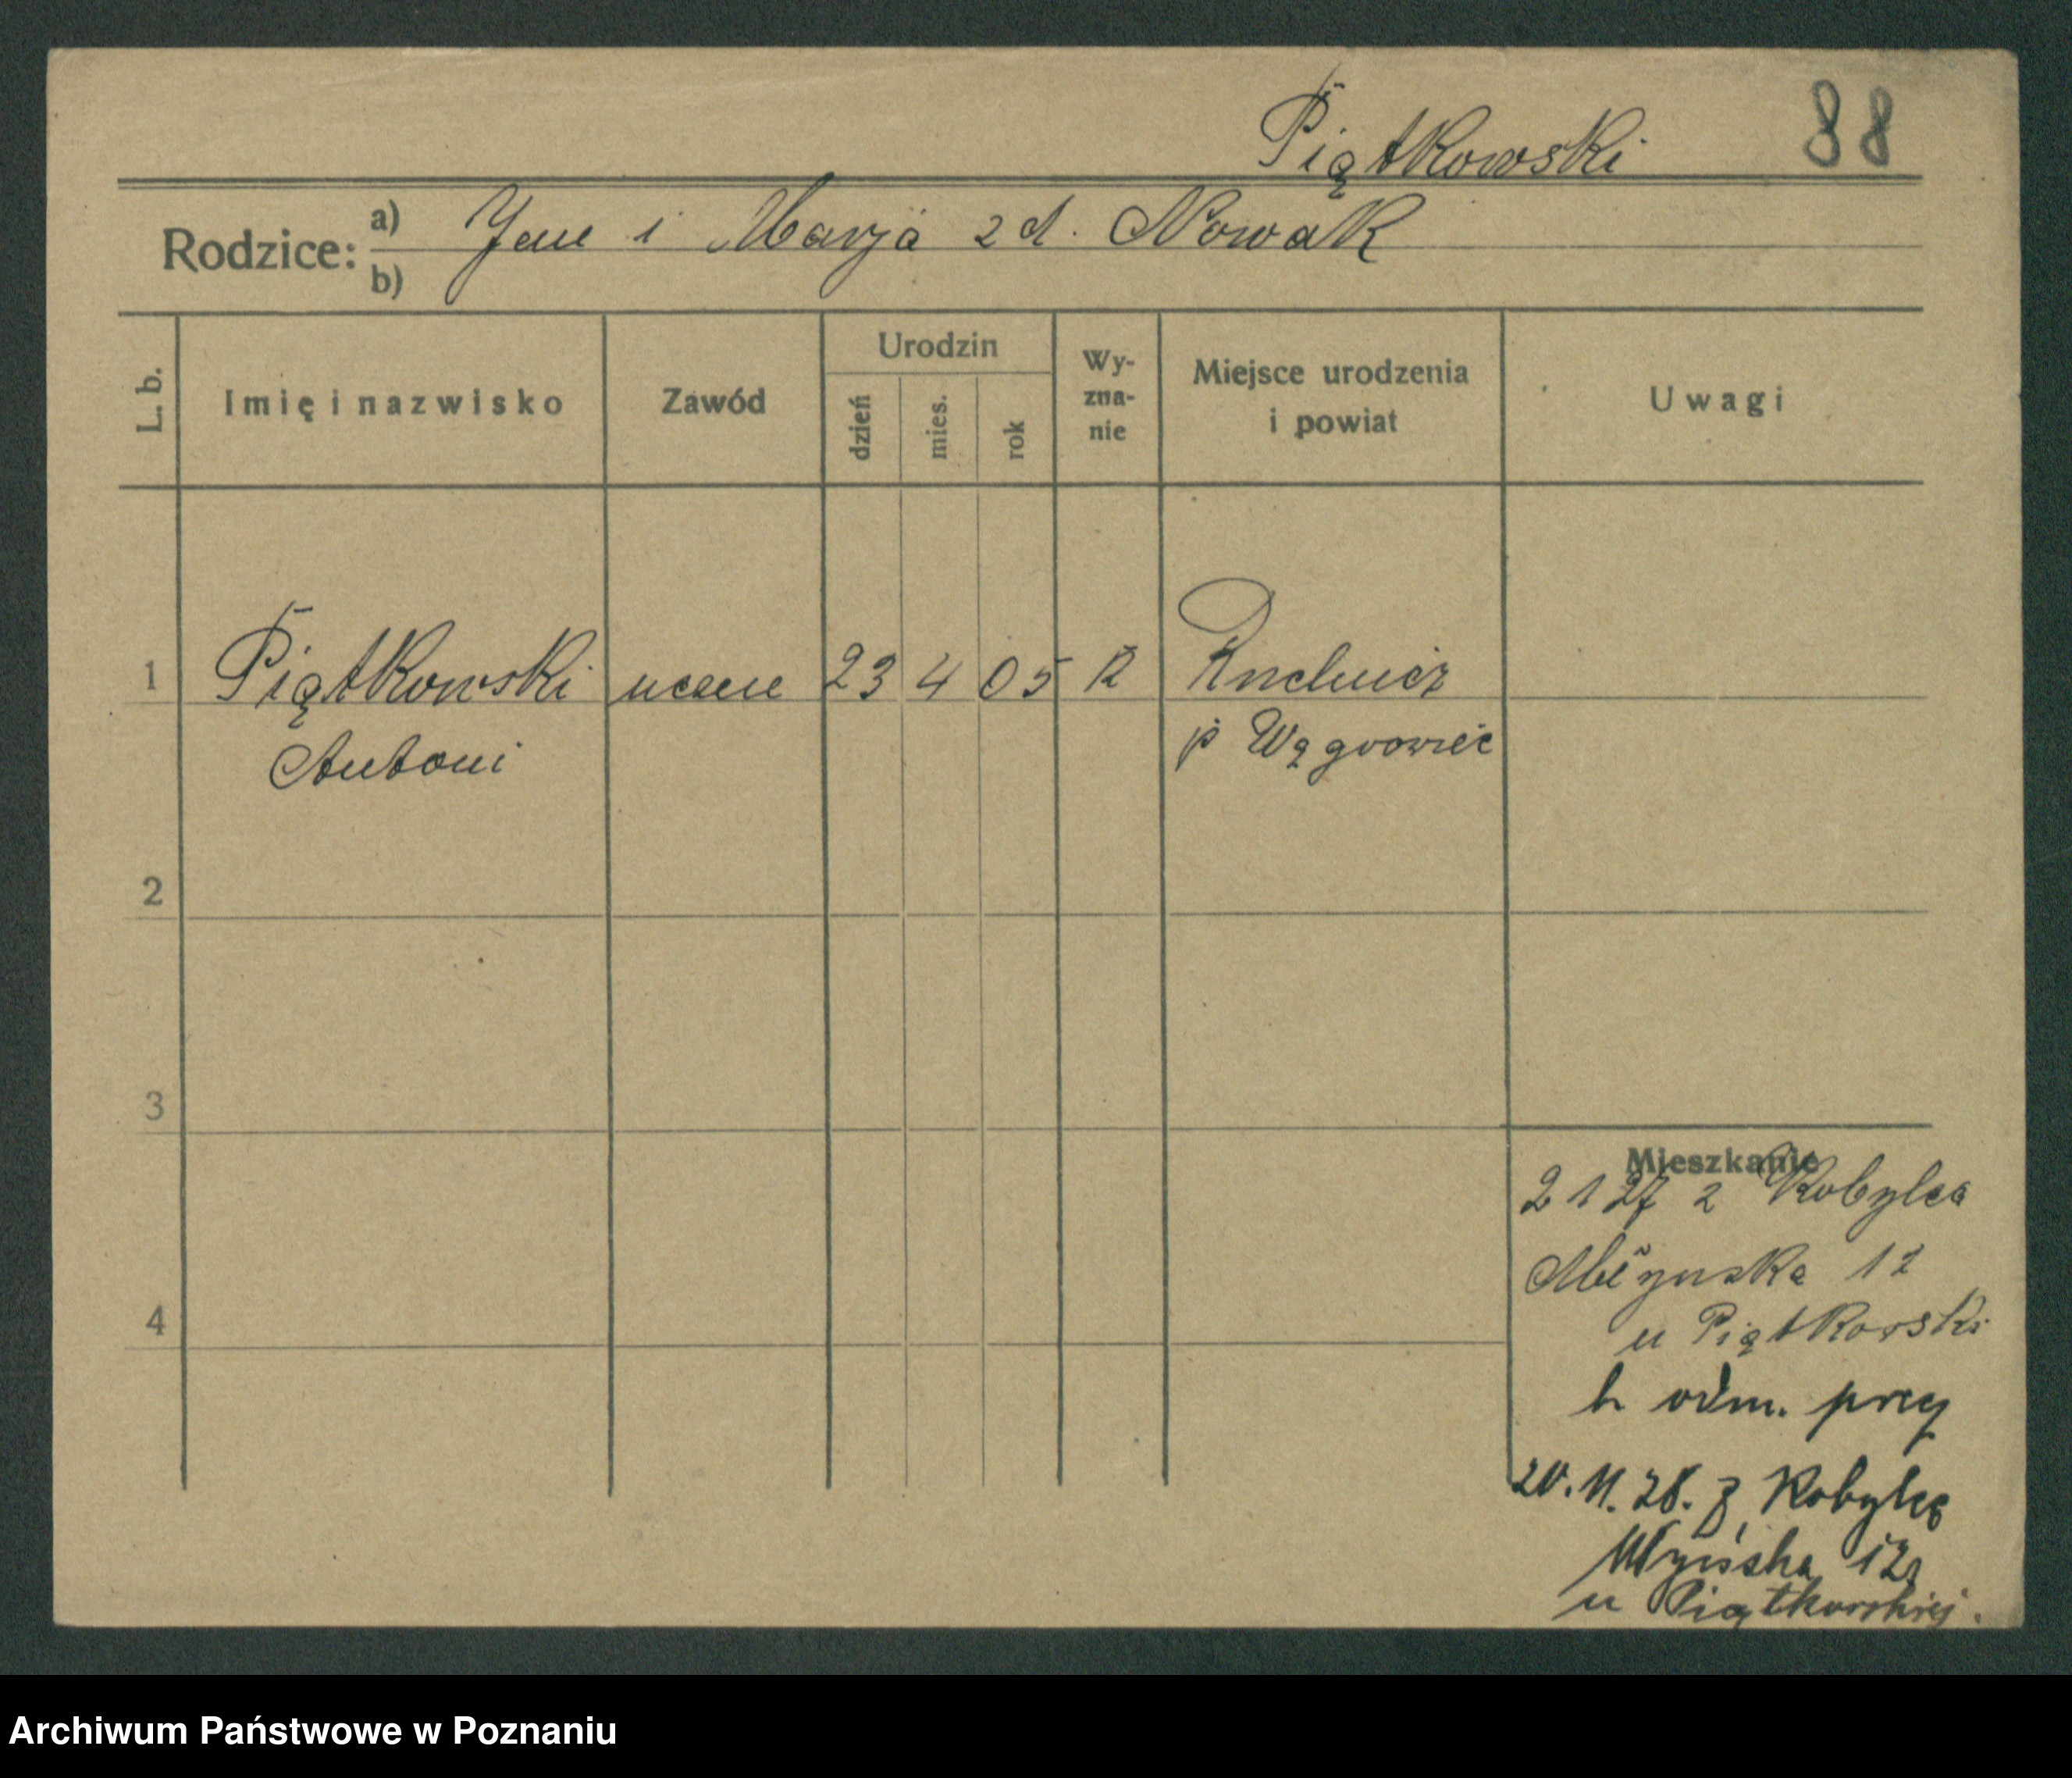 Piątkowski 88
Rodzice: a) Jan i Marja z d. Nowak
b)
L. b.
Imię i nazwisko
Zawód
Urodzin
dzień
mies.
rok
Wy-
zna-
nie
Miejsce urodzenia
i powiat
Uwagi
1 Piątkowski uczeń 23 4 05 R
Antoni p Wągrowiec
2
3
4
Mieszkanie
2 1 27 z Kobylca
Młyńska 12
u Piątkowski
20.11.28. z Kobylca
Młyńska 12
u Piątkowskiej.
Archiwum Państwowe w Poznaniu